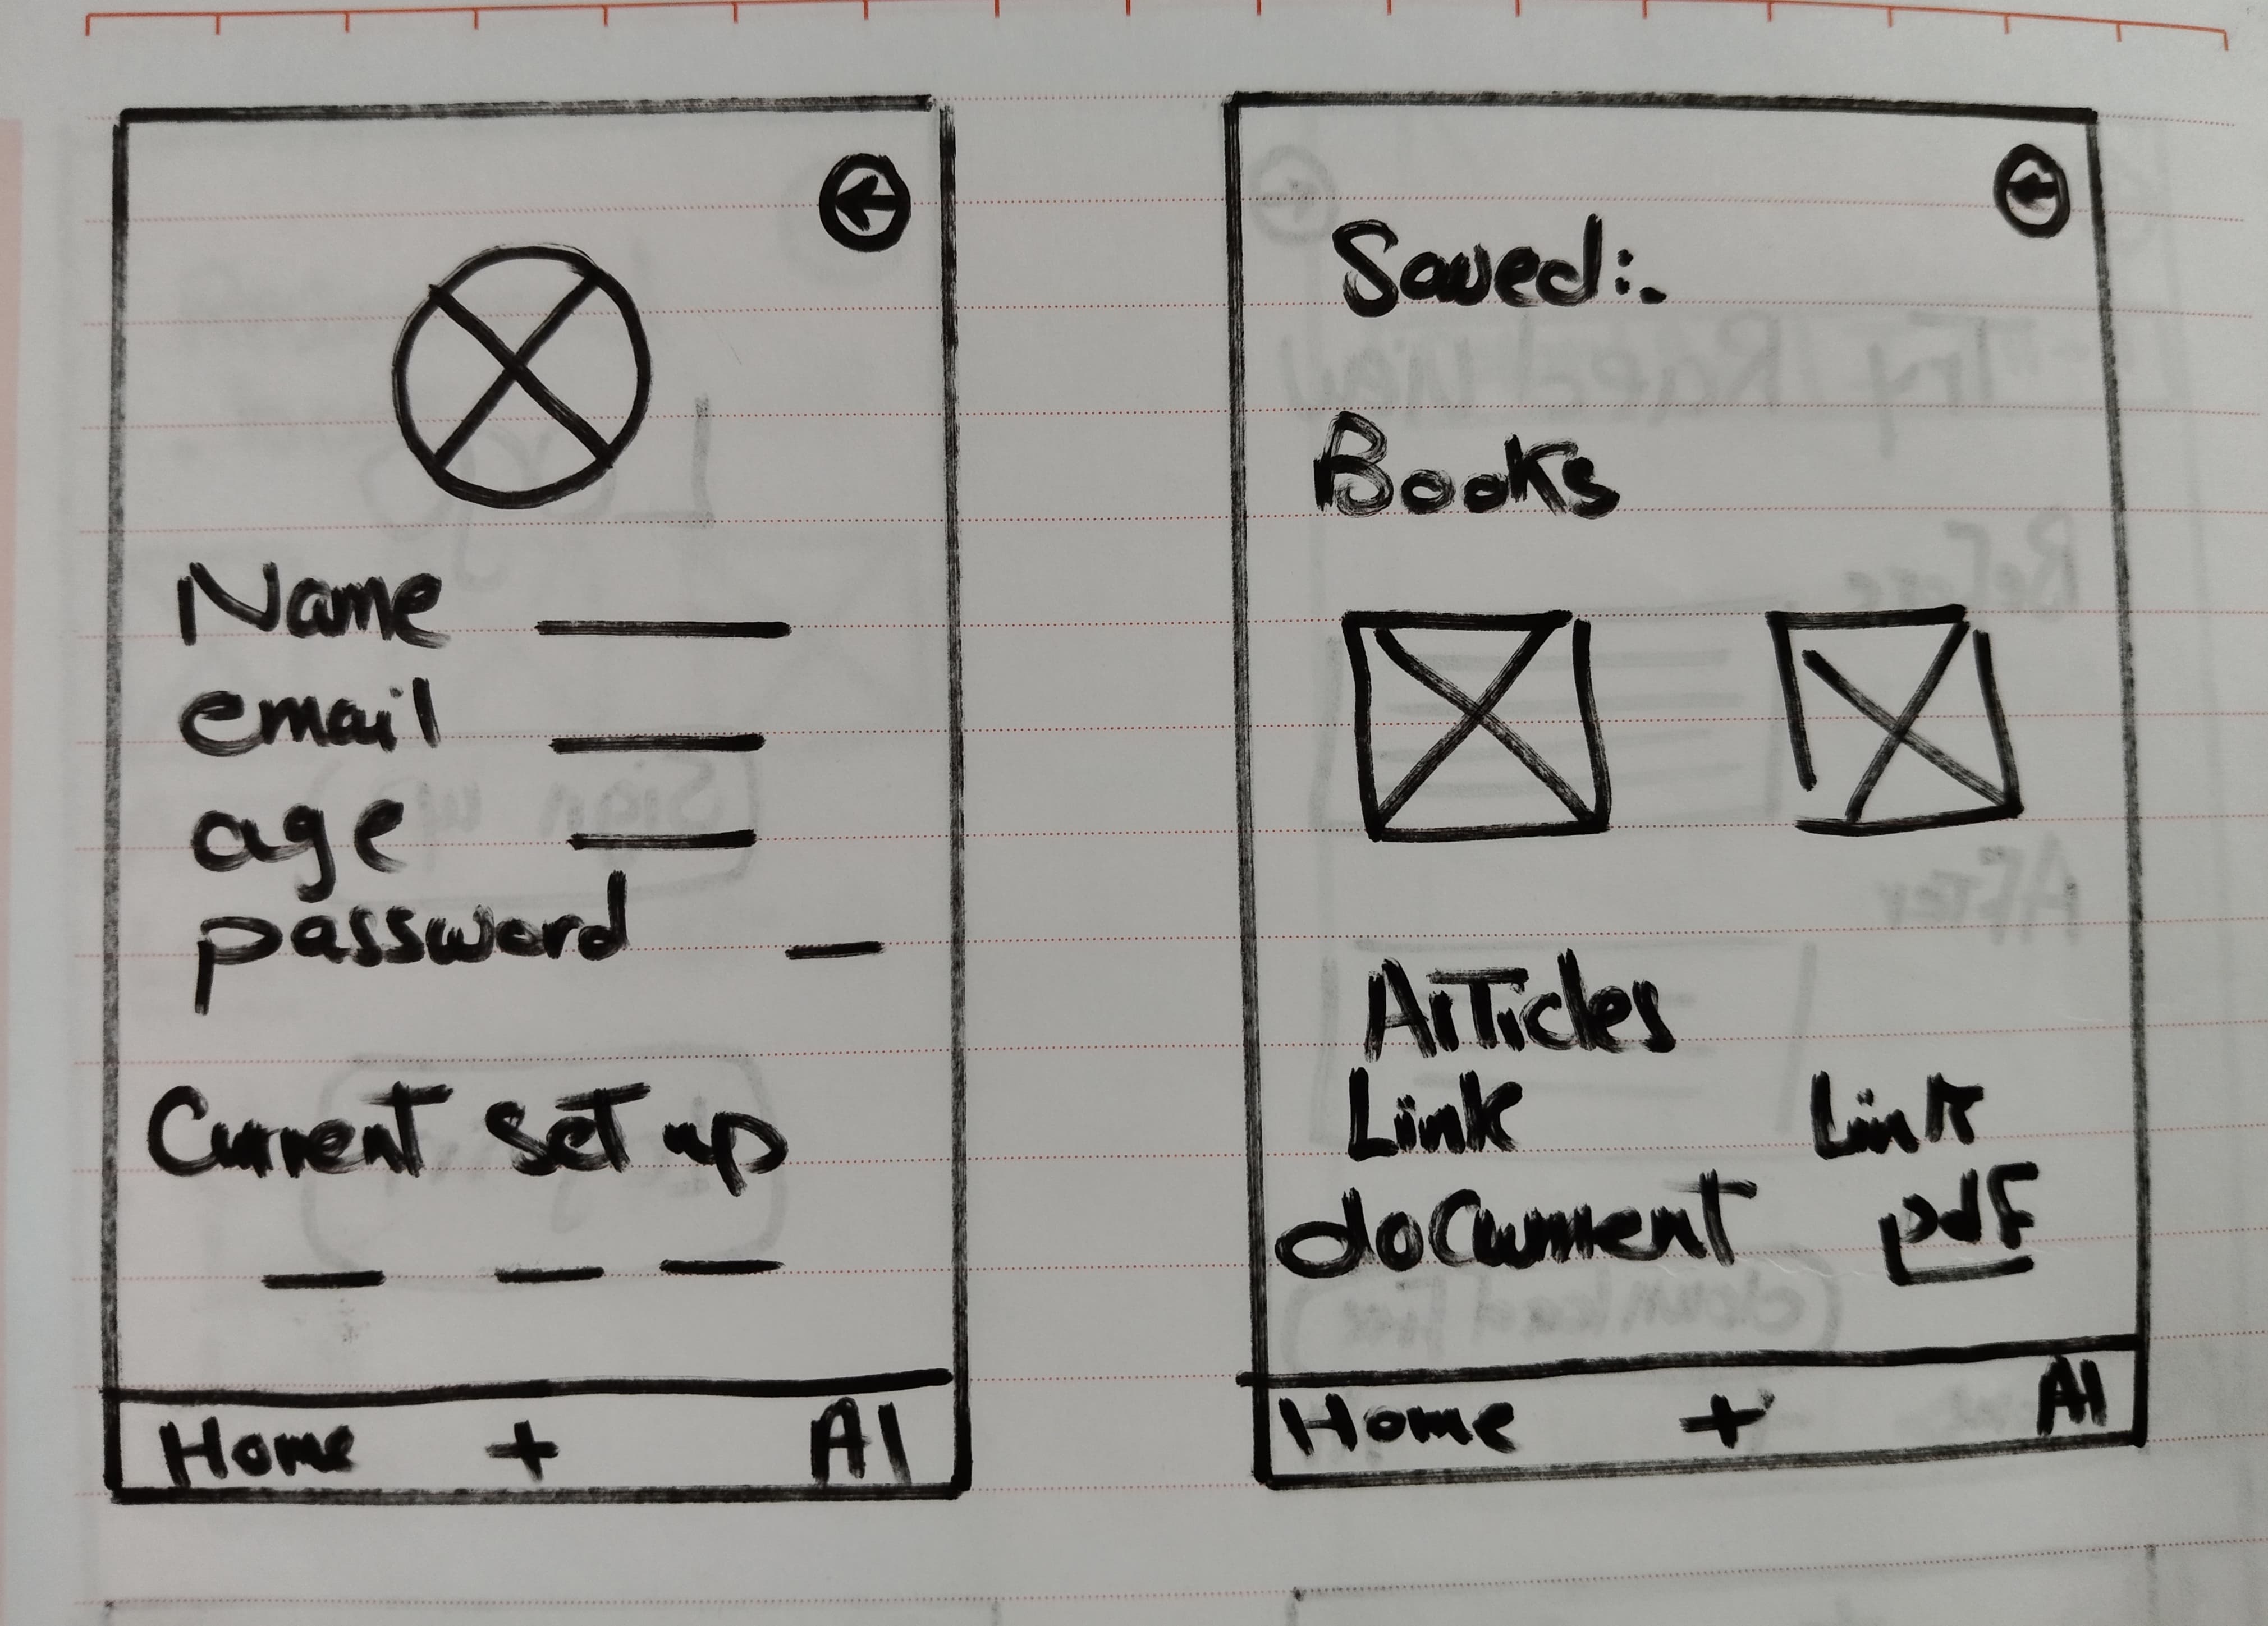 Name
email
age
password
Current set up
Home + AI
Saved:-
Books
Articles
Link Link
document pdf
Home + AI